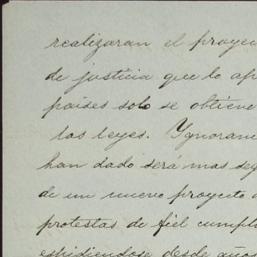 realizaran el proyec
de justicia que lo ap
paises solo se obtiene
las leyes. Ignoran
han dado será mas seg
de un nuevo proyecto
protestas de fiel cumpl
espidiendose desde años